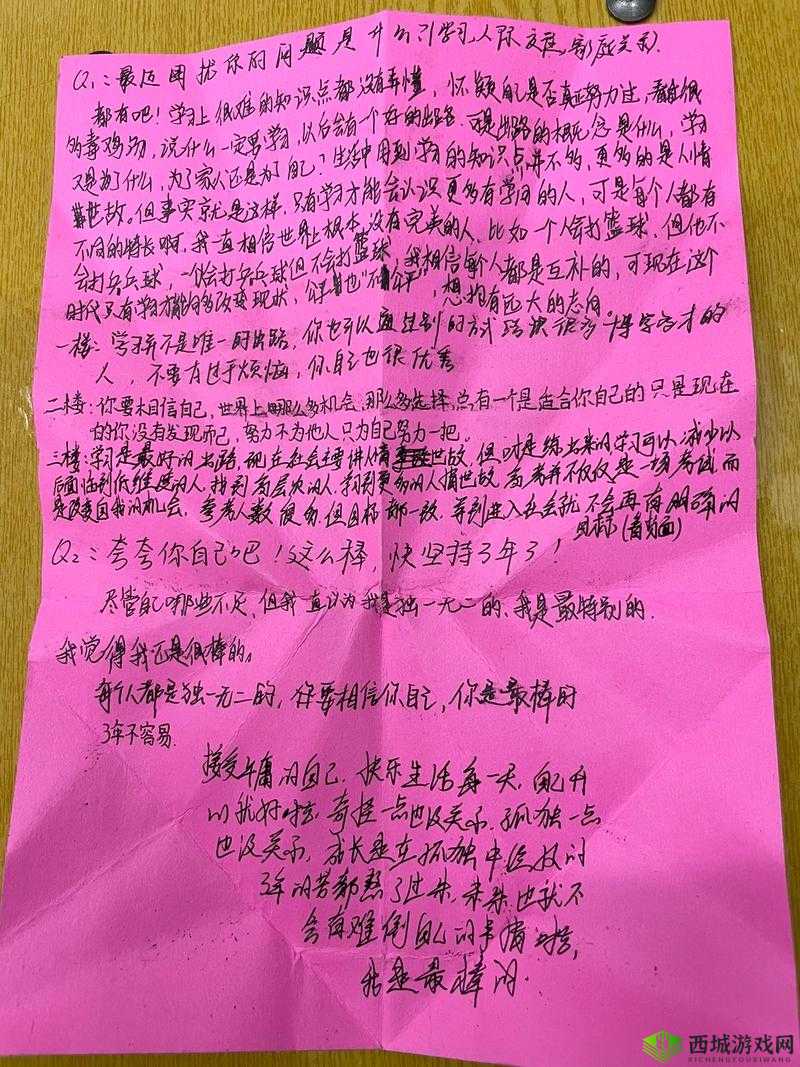 Q₁：最近困扰你的问题是什么？(学习、人际交往、家庭关系)
都有吧！学习上很难的知识点都没有弄懂，怀疑自己是否真正努力过，看过很
多毒鸡汤，说什么一定要学习，以后会有一个好的出路，可是出路的概念是什么，学习
又是为了什么，为了家人还是为了自己？生活中用到学习的知识点并不多，更多的是人情
世故。但事实就是这样，只有学习才能会认识更多有学问的人，可是每个人都有
不同的特长啊，我一直相信世界上根本没有完美的人，比如一个人会打篮球，但他不
会打乒乓球，一个会打乒乓球但不会打篮球，我相信每个人都是互补的，可现在这个
时代只有学习才能够改变现状，"不公平"，想拥有远大的志向。
一楼：学习并不是唯一的出路，你也可以通过别的方式结识很多"博学多才的
人，不要有过于烦恼，你自己也很优秀
二楼：你要相信自己，世界上哪么多机会，那么多选择，总有一个是适合你自己的只是现在
的你没有发现而已，努力不为他人只为自己努力一把。
三楼：学习是最好的出路，现在社会主要讲人情世故，但学习可以减少以
后面临到低维度的人，找到高层次的人，学到更多的人情世故，高考并不仅仅是一场考试，而
是改变自我的机会，参考人数很多，但目标都一致，等到进入社会就不会再有明确的
目标(看背面)
Q₂：夸夸你自己吧！这么棒，快坚持了3年了！
尽管自己哪些不足，但我一直认为我是独一无二的、我是最特别的.
我觉得我还是很棒的。
每个人都是独一无二的，你要相信你自己，你是最棒的
3年不容易.
接受平庸的自己，快乐生活每一天，自己开
心就好啦，奇怪一点也没关系，孤独一点
也没关系，成长是在孤独中绽放的
3年的苦都熬了过来，未来也就不
会有难倒自己的事情啦，
我是最棒的.
西城游戏网
XICHENGYOUXIWANG